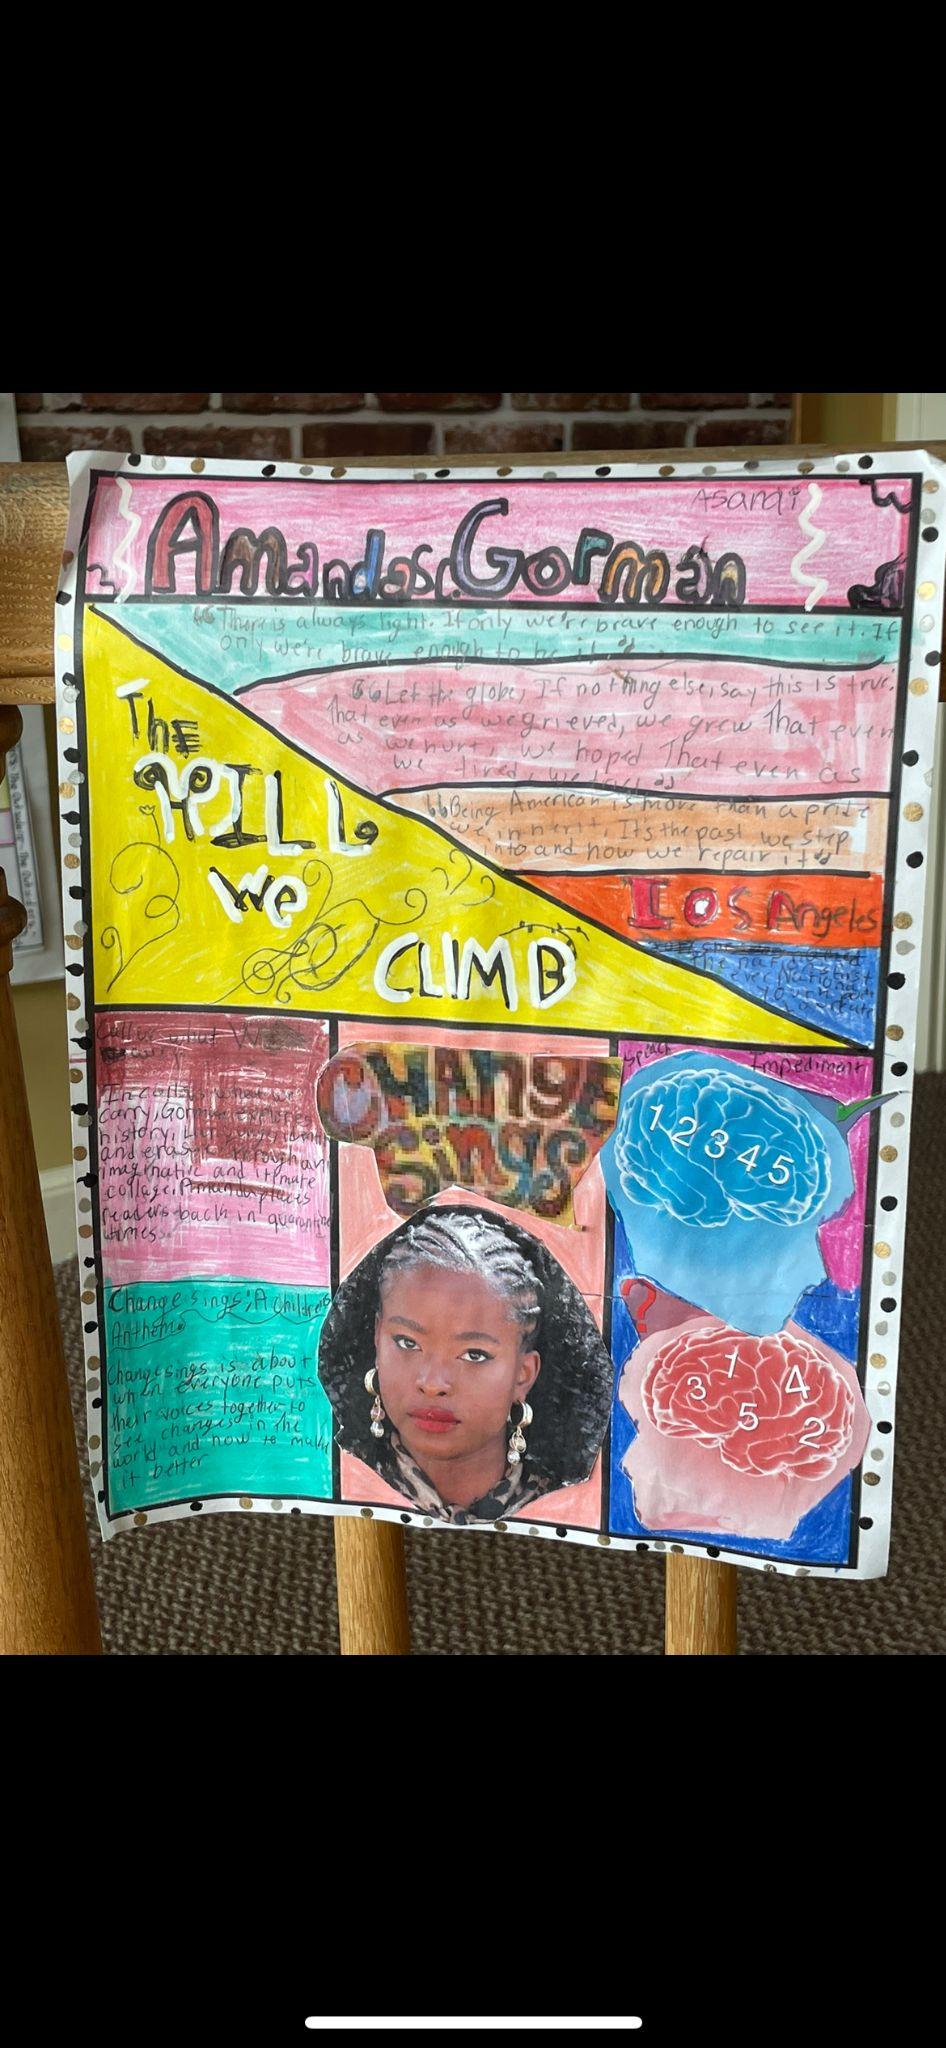 Asarai
Amanda S.C. Gorman
"There is always light. If only we're brave enough to see it. If
only we're brave enough to be it."
"Let the globe, If nothing else, say this is true.
That even as we grieved, we grew That even
as we hurt, we hoped That even as
we tired, we
"Being American is more than a pride
we inherit, It's the past we step
into and how we repair it"
The
HILL
We
CLIMB
Los Angeles
The
ever National
Youth
Call us what We
carry
In call us what we
carry, Gorman explores
history,
and through an
imaginative and
collage.
readers back in quarantine
times.
Change sings; A children's
Anthem.
Change sings is about
when everyone puts
their voices together to
see changes in the
world and how to make
it better
CHANGE
Sings
Speach Impediment
1 2 3 4 5
?
1
3 4
5
2